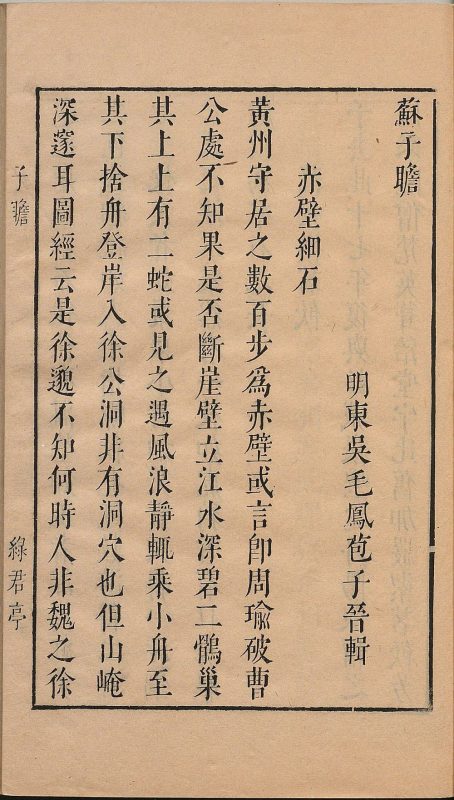 蘇子瞻
明東吳毛鳳苞子晉輯
赤壁細石
黃州守居之數百步爲赤壁或言卽周瑜破曹
公處不知果是否斷崖壁立江水深碧二鶻巢
其上上有二蛇或見之遇風浪靜輒乘小舟至
其下捨舟登岸入徐公洞非有洞穴也但山崦
深邃耳圖經云是徐邈不知何時人非魏之徐
子瞻
綠君亭